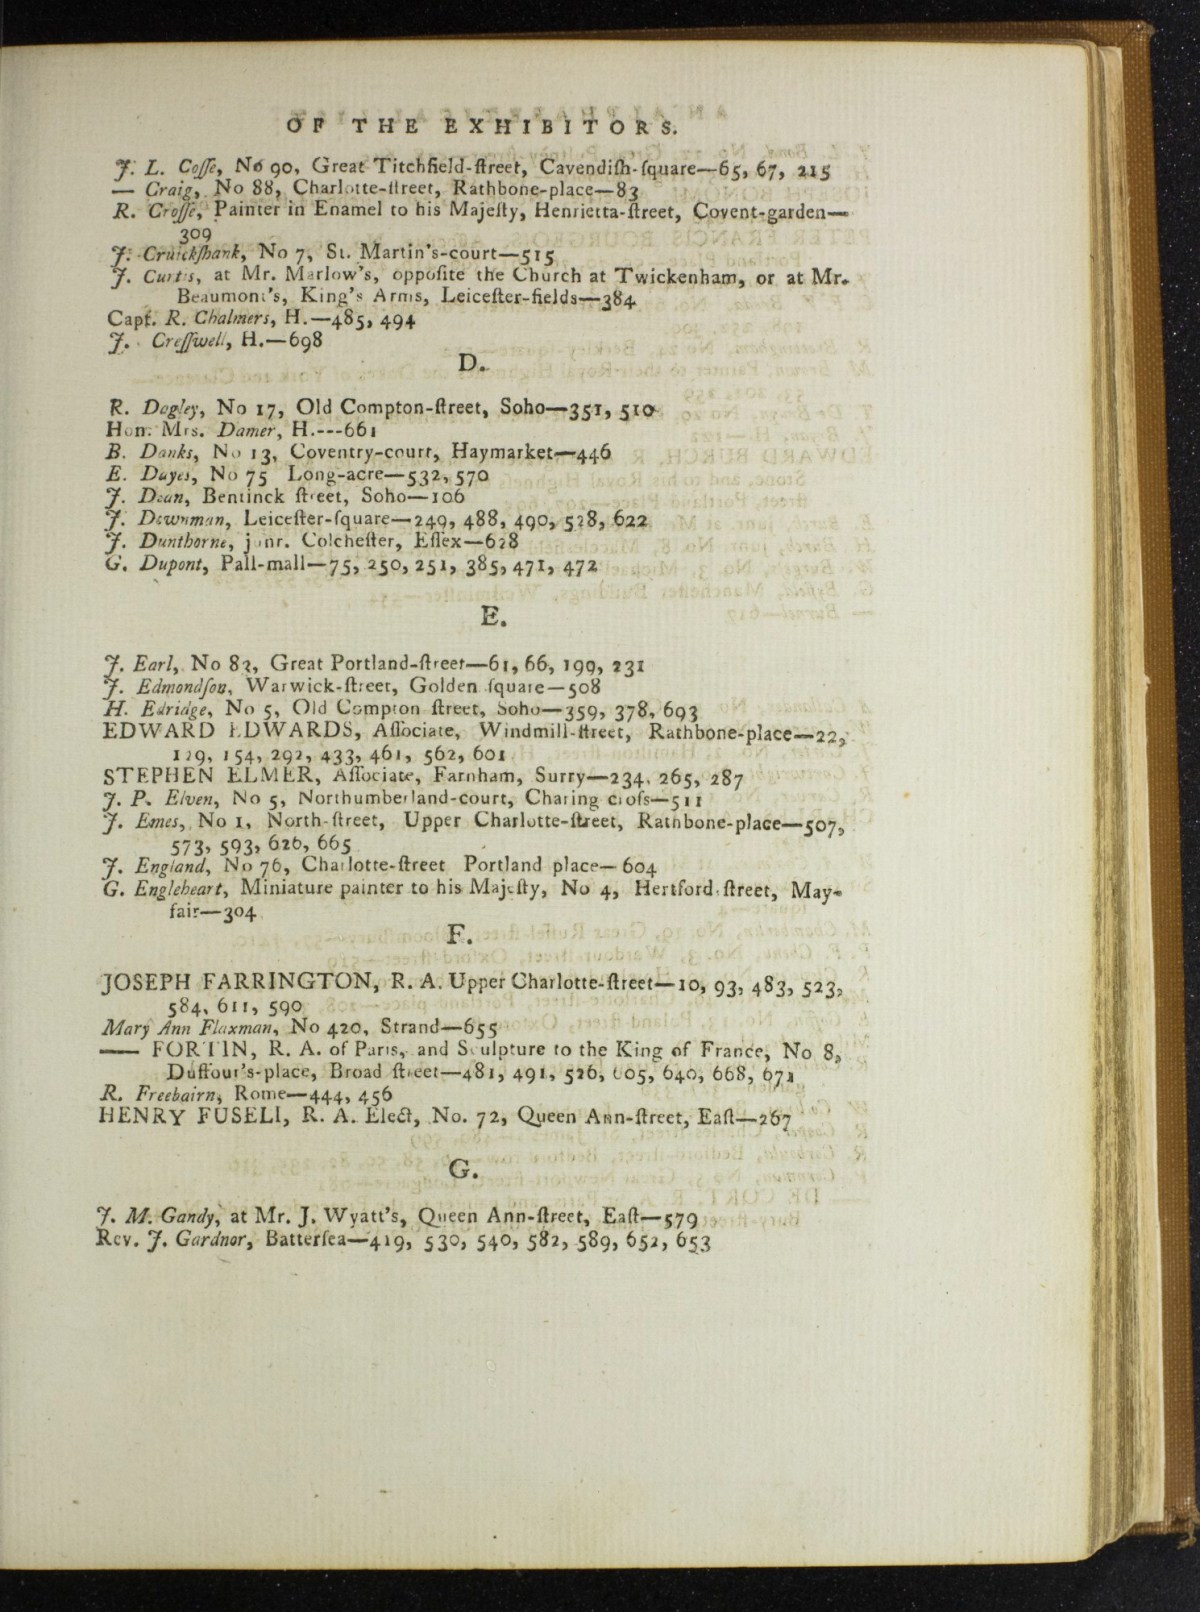 OF THE EXHIBITORS.
J. L. Coſſe, No 90, Great Titchfield-ſtreet, Cavendiſh-ſquare—65, 67, 215
— Craig, No 88, Charlotte-ſtreet, Rathbone-place—83
R. Croſſe, Painter in Enamel to his Majeſty, Henrietta-ſtreet, Covent-garden—
309
J. Cruickſhank, No 7, St. Martin's-court—515
J. Curtis, at Mr. Marlow's, oppoſite the Church at Twickenham, or at Mr.
Beaumont's, King's Arms, Leiceſter-fields—384
Capt. R. Chalmers, H.—485, 494
J. Creſſwell, H.—698
D.
R. Dagley, No 17, Old Compton-ſtreet, Soho—351, 510
Hon. Mrs. Damer, H.---661
B. Danks, No 13, Coventry-court, Haymarket—446
E. Dayes, No 75 Long-acre—532, 570
J. Dean, Bentinck ſtreet, Soho—106
J. Downman, Leiceſter-ſquare—249, 488, 490, 528, 622
J. Dunthorne, junr. Colcheſter, Eſſex—628
G. Dupont, Pall-mall—75, 250, 251, 385, 471, 472
E.
J. Earl, No 82, Great Portland-ſtreet—61, 66, 199, 231
J. Edmondſon, Warwick-ſtreet, Golden ſquare—508
H. Edridge, No 5, Old Compton ſtreet, Soho—359, 378, 693
EDWARD EDWARDS, Aſſociate, Windmill-ſtreet, Rathbone-place—22,
129, 154, 292, 433, 461, 562, 601
STEPHEN ELMER, Aſſociate, Farnham, Surry—234, 265, 287
J. P. Elven, No 5, Northumberland-court, Charing croſs—511
J. Emes, No 1, North-ſtreet, Upper Charlotte-ſtreet, Rathbone-place—507,
573, 593, 626, 665
J. England, No 76, Charlotte-ſtreet Portland place—604
G. Engleheart, Miniature painter to his Majeſty, No 4, Hertford ſtreet, May-
fair—304
F.
JOSEPH FARRINGTON, R. A. Upper Charlotte-ſtreet—10, 93, 483, 523,
584, 611, 590
Mary Ann Flaxman, No 420, Strand—655
—— FORTIN, R. A. of Paris, and Sculpture to the King of France, No 8,
Duffour's-place, Broad ſtreet—481, 491, 526, 605, 640, 668, 671
R. Freebairn, Rome—444, 456
HENRY FUSELI, R. A. Elect, No. 72, Queen Ann-ſtreet, Eaſt—267
G.
J. M. Gandy, at Mr. J. Wyatt's, Queen Ann-ſtreet, Eaſt—579
Rev. J. Gardnor, Batterſea—419, 530, 540, 582, 589, 652, 653